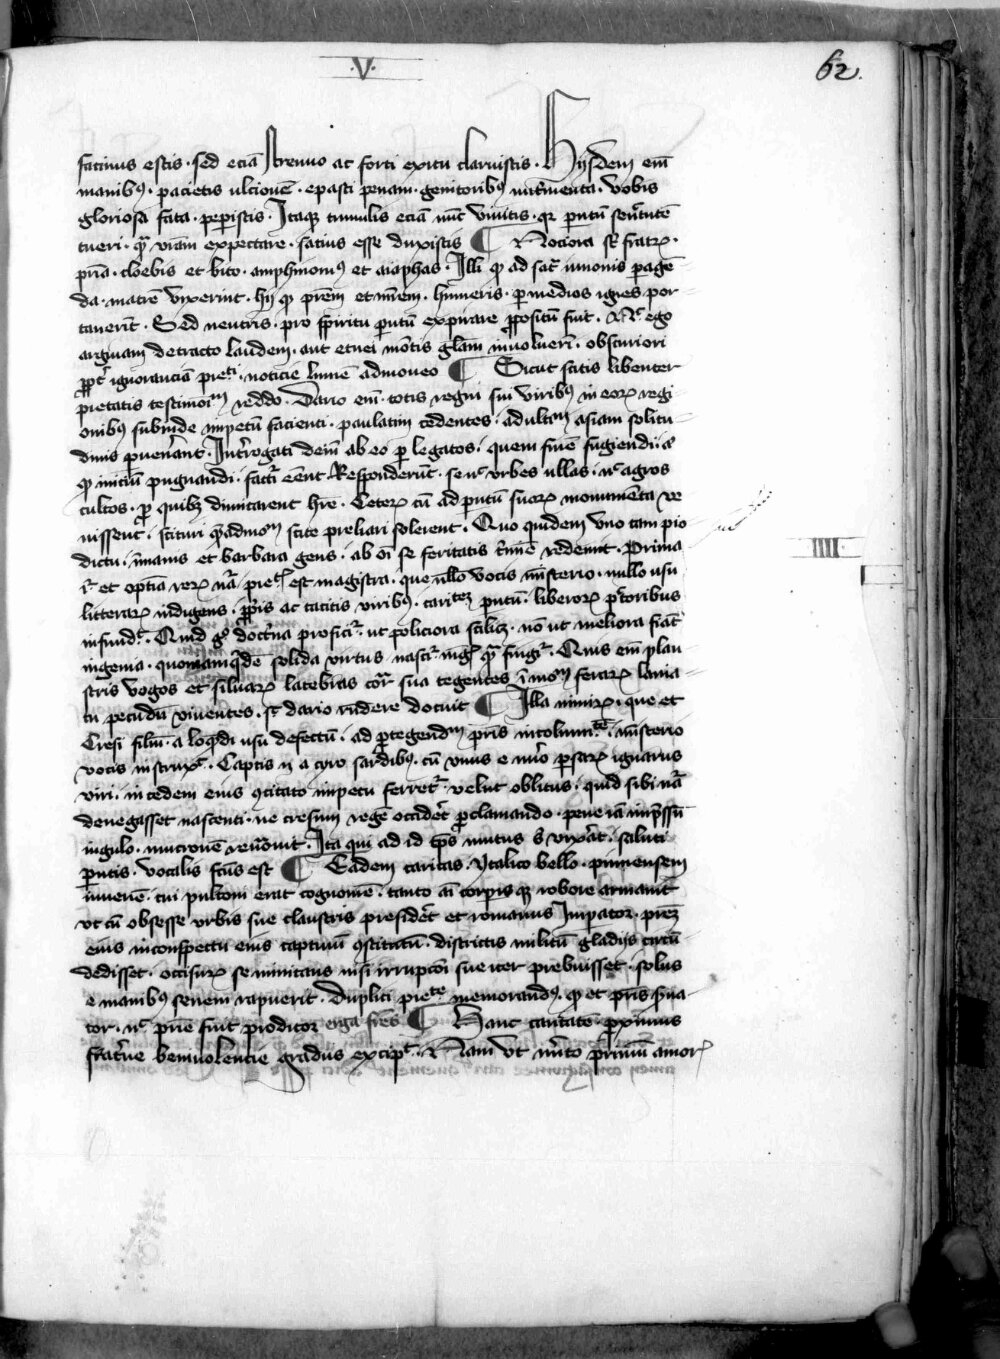 .V.
62.
facinus estis · sed eciā strenuo ac forti exitu claruistis · Hijsdem em̄
manibꝰ · pacietis ulcionē · epasti penam · genitoribꝰ nutrīmenta · vobis
gloriosa fata · peperistis · Itaqꝫ tumulis eciā nūc viuitis · qꝛ pntū senetutē
tueri · qͣ viam expectare · satius esse duxistis ¶ Nociora sͥ fratrꝫ ·
pria · cloebis et bito · amphinomꝰ et anaphas · Illi qꝫ ad sacͬ iunonis pagē
da · matrē vixerint · hij qꝫ prēm et mrēm · humeris · p medios ignes por
tauerīt · Sed neutris · pro spiritu pntū expirare ꝓpositū fuit · Nͨ ego
arguiam detracto laudem · aut etnei mōtis glām inuolueri · obscuriori
ꝓptͥ ignoranciam pietͥ · noticie lumē admoueo ¶ Sicut scitis libenter
pietatis testimoīm reddo · Dario em̄ · totis regni sui viribus in eorꝫ regi
onibus subinde impetū facienti · paulatim cedentes · ad ultaͫ asiam solitu
dinis puenerant · Intrrogati deīn ab eo p legatos · quem finē fugiendi · aͭ
qͩ iniciū pugnandi · factͥ eēnt · Responderūt · se nͨ vrbes ullas · nͨ agros
cultos · p quibꝫ dimicarent hr̄e · Ceterꝫ cū ad pntū suorꝫ monimēta ve
nissent · scituri qͣadmoͫ scite preliari solerent · Quo quidem vno tam pio
dictu · inmanis et barbara gens · ab oī se feritatis crīmē redemit · Prima
iͬ et optīa rerꝫ nͣa pietͥ est magistra · que nllō vocis mīsterio · nullo usu
litterarꝫ indigens · ꝓprijs ac tacitis viribꝰ · caritͣeꝫ pntū · liberorꝫ pectoribus
infundͭ · Quid gͦ doctͥna proficitͬ · ut policiora scilicꝫ · nō ut meliora fiāt
ingenia · quoniam qͥdē solida virtus nascitͬ · mgͥ qͣ fingitͬ · Quis em̄ plau
stris vagos et siluarꝫ latebris corͣ sua tegentes ī moͫ ferarꝫ lania
tu pecudū viuentes · sͥ dario rn̄dere docuit ¶ Illa nimirꝫ · que et
Cresi filiū · a loqͤdi usu defectū · ad ptegendͫ pris incolumitͣē · mīsterio
vocis instruxͭ · Captis n̄ a cyro sardibꝰ · cū vnus e nūo psarꝫ ignarus
viri · in cedem eius ꝯcitato impetu ferretͬ · velut oblitus · quid sibi nͣa
denegasset nascenti · ne cresum regē occidēt ꝓclamando · pene iā impssū
iugulo · mucronē reuocauit · Ita qui ad id tp̄s mutus sͥ vixāt · saluti
pntis · vocalis fcūs est ¶ Eadem caritas · ytalico bello · pinnensem
iuuenē · cui pultoni erat cognomē · tanto aī corpis qꝫ robore armauit
vt cū obsesse vrbis sue claustris presidēt et romanus Impator · prēꝫ
eius inconspectu eius captiuū ꝯstitutū · districtis militū gladijs circū
dedisset · occisurꝫ se minitans nisi irrupcōi sue iter prebuisset · solus
e manibus senem rapuerit · Duplici pietͣe memorandꝰ · qꝫ et pris serua
tor · nͨ prie fuit proditor erga frēs ¶ Hanc caritatē · proximus
fratrne beniuolencie gradus excipͭ · Nam vt mrīto primū amorꝫ
IIII